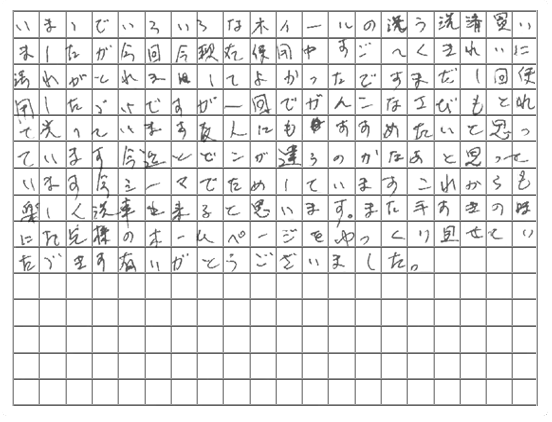 いままでいろいろなホイールの洗う洗清買い
ましたが今回今現在使用中すごーくきれいに
汚れがとれましてよかったですまだ1回使
用したづけですが一回でがんこなサビもとれ
て洗っています友人にもすすめたいと思っ
ています今迄とどこが違うのかなあと思って
います今シーマでためしていますこれからも
楽しく洗車出来ると思います。またすきのほ
にた兄様のホームページをゆっくり見せてい
たづきます有いがとうございました。